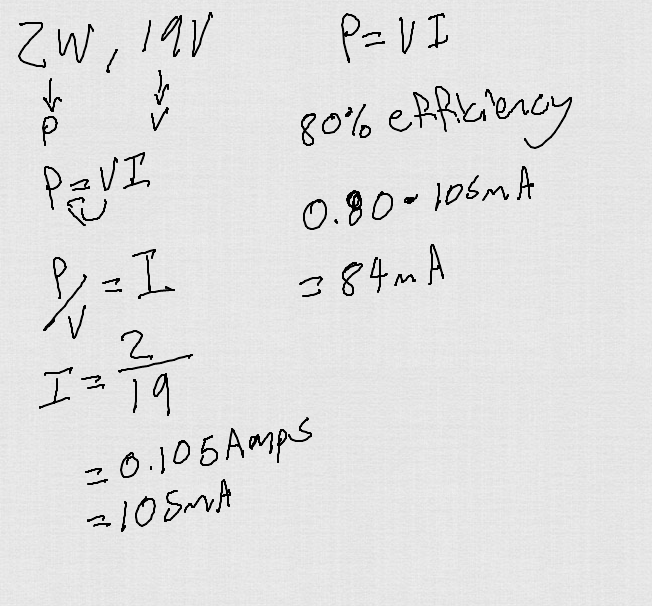 2W, 19V
↓ ↓
P V
P=VI
P/V = I
I = 2/19
= 0.105 Amps
= 105mA
P=VI
80% efficiency
0.80 • 105mA
= 84mA